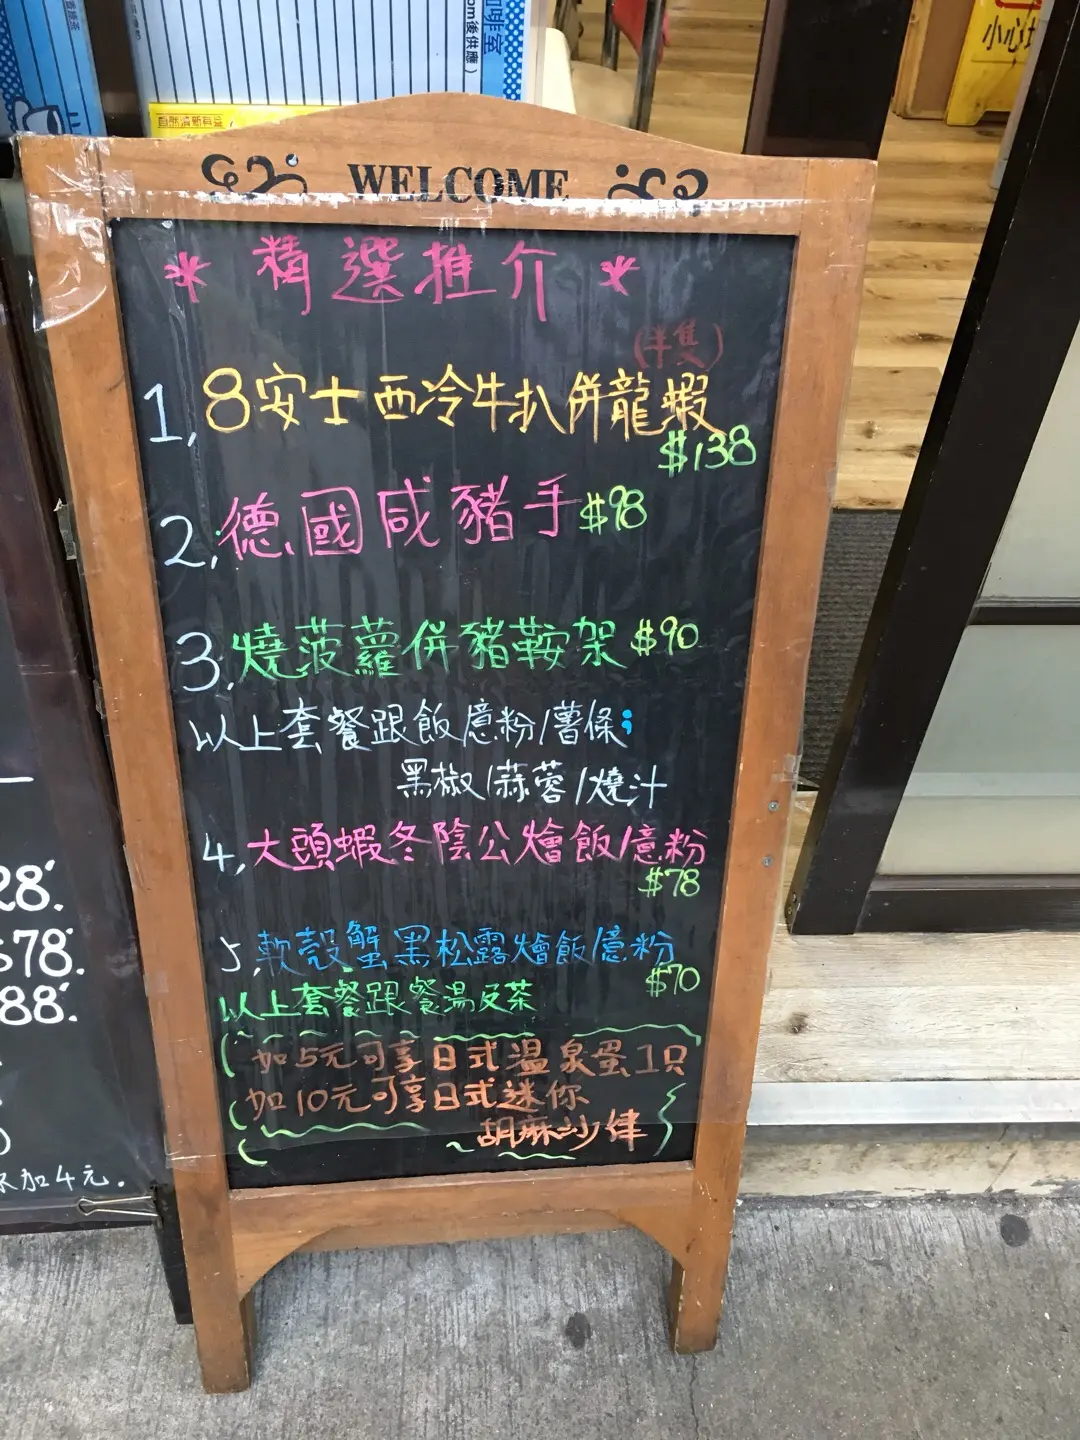 咖啡室
pm後供應）
小心地
自然清新有營
WELCOME
* 精選推介 *
(半隻)
1, 8安士西冷牛扒併龍蝦
$138
2, 德國咸豬手 $98
3, 燒菠蘿併豬鞍架 $90
以上套餐跟飯/意粉/薯條;
黑椒/蒜蓉/燒汁
4, 大頭蝦冬陰公燴飯/意粉
$78
5, 軟殼蟹黑松露燴飯/意粉
$70
以上套餐跟餐湯及茶
加5元可享日式溫泉蛋1只
加10元可享日式迷你
胡麻沙律
28'.
$78'.
88'.
加4元.